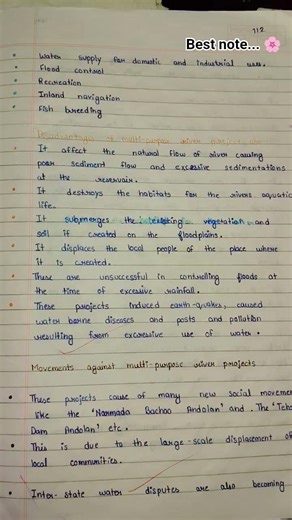 112
Best note... 🌸
Water supply for domatic and industrial use.
Flood control
Recreation
Inland navigation
Fish breeding
Disadvantages of multi-purpose river
It affect the natural flow of river causing
poor sediment flow and excessive sedimentations
at the reservoir.
It destroys the habitats for the rivers aquatic
life.
It submerges the existing vegetation and
soil if created on the floodplains.
It displaces the local people of the place where
it is created.
These are unsuccessful in controlling floods at
the time of excessive rainfall.
These projects induced earth-quakes, caused
water borne diseases and pests and pollution
resulting from excessive use of water.
Movements against multi-purpose river projects
These projects cause of many new social movemen
like the 'Narmada Bachao Andolan' and The 'Teh
Dam Andolan' etc.
This is due to the large-scale displacement of
local communities.
Inter-state water disputes are also becoming